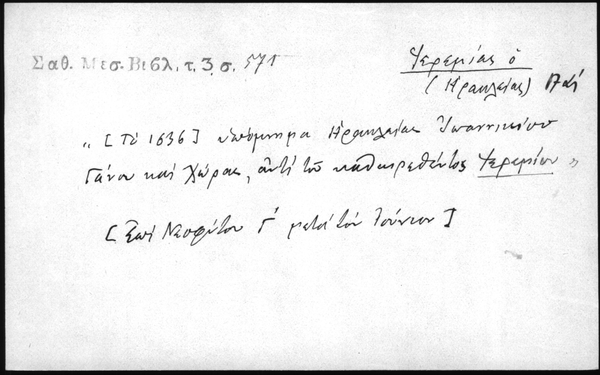 Σαθ. Μεσ. Βιβλ. τ. 3, σ. 571
Ἱερεμίας ὁ
(Ἡρακλείας)
"[Τῷ 1636] ὑπόμνημα Ἡρακλείας Ἰωαννικίου
Γάνου καὶ Χώρας, ἀντὶ τοῦ καθαιρεθέντος Ἱερεμίου"
[Ἐπὶ Νεοφύτου Γ΄ μετὰ τὸν Ἰούνιον]